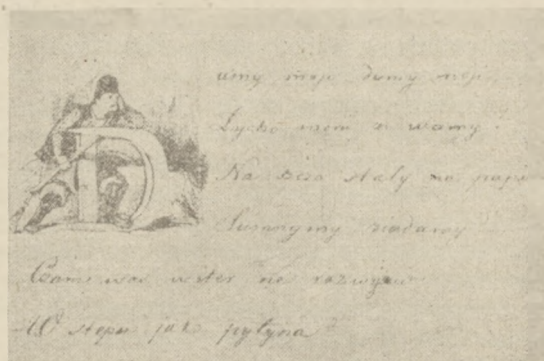 Dumy moji dumy moji
Lycho meni z wamy
Na szczo staly na papi
Sumnymy riadamy
was witer ne
W stepu jak pylyna